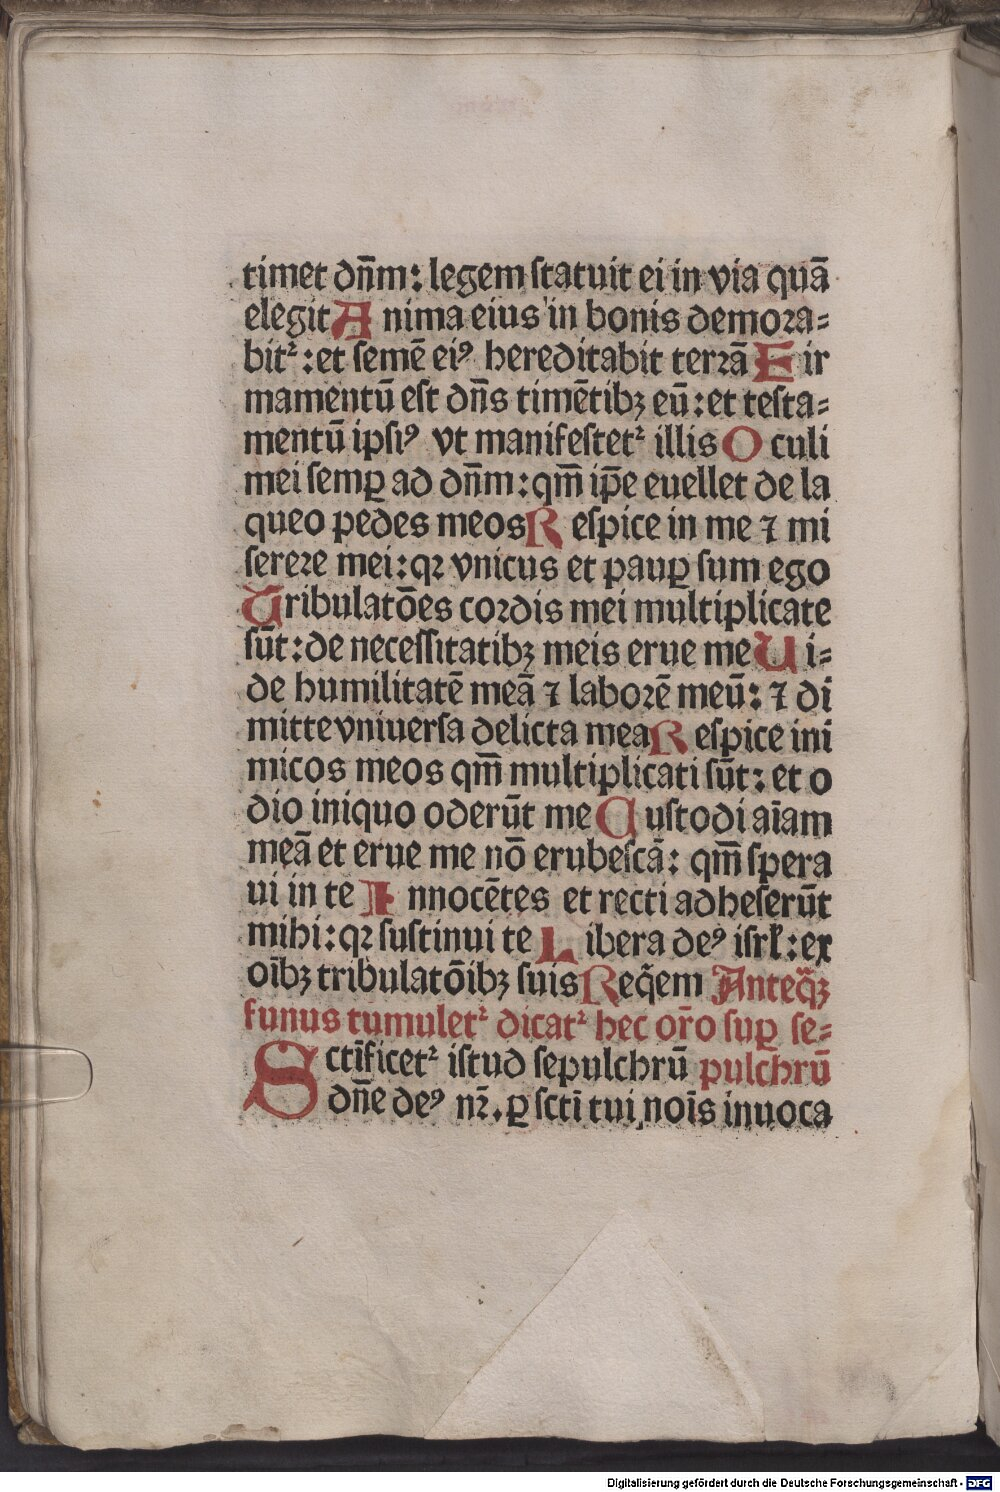 timet dn̄m: legem statuit ei in via quā
elegit A nima eius in bonis demora=
bitꝛ: et semē eiꝰ hereditabit terrā E ir
mamentū est dn̄s timētibꝫ eū: et testa=
mentū ipsiꝰ vt manifestetꝛ illis O culi
mei semꝑ ad dn̄m: qm̄ ip̄e euellet de la
queo pedes meos R espice in me ⁊ mi
serere mei: qꝛ vnicus et pauꝑ sum ego
Tribulatōes cordis mei multiplicate
sūt: de necessitatibꝫ meis erue me U i=
de humilitatē meā ⁊ laborē meū: ⁊ di
mitte vniuersa delicta mea R espice ini
micos meos qm̄ multiplicati sūt: et o
dio iniquo oderūt me C ustodi aīam
meā et erue me nō erubescā: qm̄ spera
ui in te I nnocētes et recti adheserūt
mihi: qꝛ sustinui te L ibera deꝰ isrł: ex
oībꝫ tribulatōibꝫ suis Req̄em Anteq̄ꝫ
funus tumuletꝛ dicatꝛ hec or̄o suꝑ se=
Sctīficetꝛ istud sepulchrū pulchrū
dn̄e deꝰ nꝛ̄. ꝑ sctī tui noīs inuoca
Digitalisierung gefördert durch die Deutsche Forschungsgemeinschaft - DFG